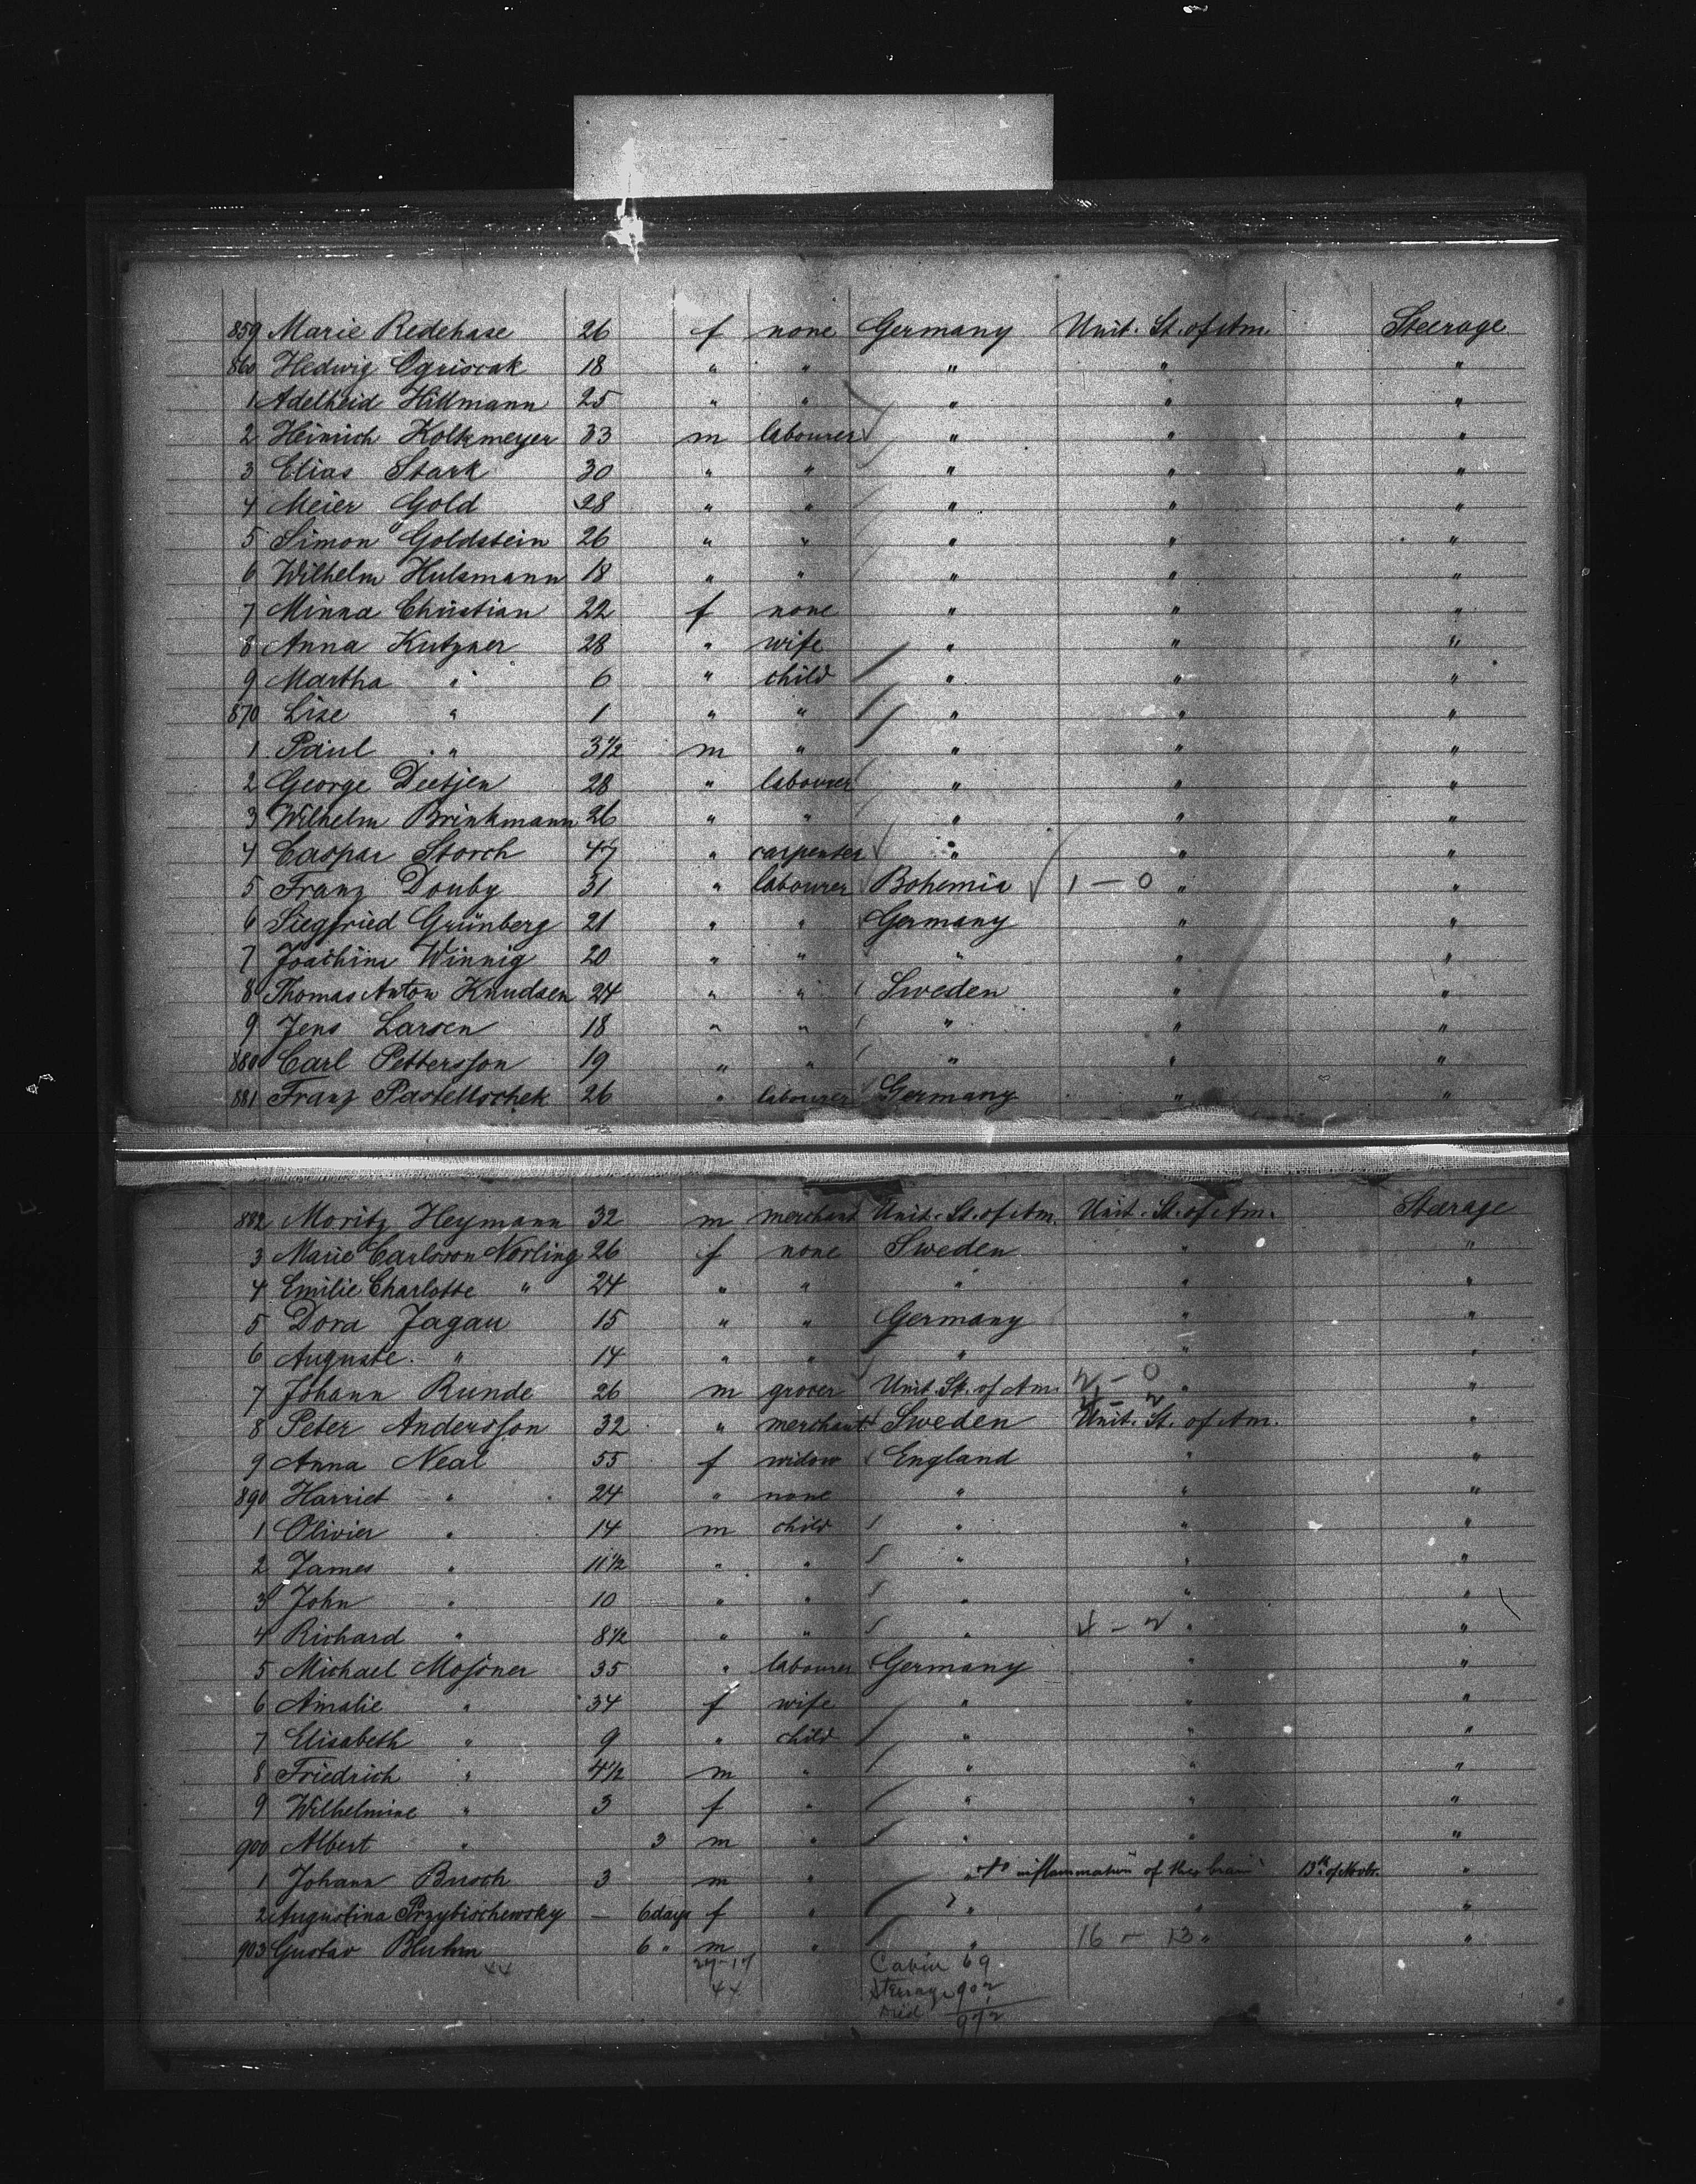 859 Marie Redehase 26 f none Germany Unit. St. of Am. Steerage
860 Hedwig Ogriscak 18 " " " " "
1 Adelheid Hillmann 25 " " " " "
2 Heinrich Holtzmeyer 33 m labourer " " "
3 Elias Stark 30 " " " " "
4 Meier Gold 28 " " " " "
5 Simon Goldstein 26 " " " " "
6 Wilhelm Hulsmann 18 " " " " "
7 Minna Christian 22 f none " " "
8 Anna Kutzner 28 " wife " " "
9 Martha " 6 " child " " "
870 Lise " 1 " " " " "
1 Paul " 3 1/2 m " " " "
2 George Deetjen 28 " labourer " " "
3 Wilhelm Brinkmann 26 " " " " "
4 Caspar Storch 47 " carpenter " " "
5 Franz Douby 31 " labourer Bohemia 1 – 0 " "
6 Siegfried Grünberg 21 " " Germany " "
7 Joachim Winnig 20 " " " " "
8 Thomas Anton Knudsen 24 " " Sweden " "
9 Jens Larsen 18 " " " " "
880 Carl Pettersson 19 " " " " "
881 Franz Pastellochek 26 " labourer Germany " "
882 Moritz Heymann 32 m merchant Unit. St. of Am. Unit. St. of Am. Steerage
3 Marie Carlsson Norling 26 f none Sweden " "
4 Emilie Charlotte " 24 " " " " "
5 Dora Jagau 15 " " Germany " "
6 Auguste " 14 " " " " "
7 Johann Runde 26 m grocer Unit. St. of Am. 2 – 0 " "
8 Peter Andersson 32 " merchant Sweden Unit. St. of Am. "
9 Anna Neal 55 f widow England " "
890 Harriet " 24 " none " " "
1 Olivier " 14 m child " " "
2 James " 11 1/2 " " " " "
3 John " 10 " " " " "
4 Richard " 8 1/2 " " " 4 – 2 " "
5 Michael Mossner 35 " labourer Germany " "
6 Amalie " 34 f wife " " "
7 Elisabeth " 9 " child " " "
8 Friedrich " 4 1/2 m " " " "
9 Wilhelmine " 3 f " " " "
900 Albert " 3 m " " " "
1 Johann Busch 3 m " " † inflammation of the brain 13th of Novbr. "
2 Augustina Przybischewsky – 6 days f " " " "
903 Gustav Bluhm 6 " m " " 16 – 13 " "
44 27–17 Cabin 69
44 Steerage 902
Died
972